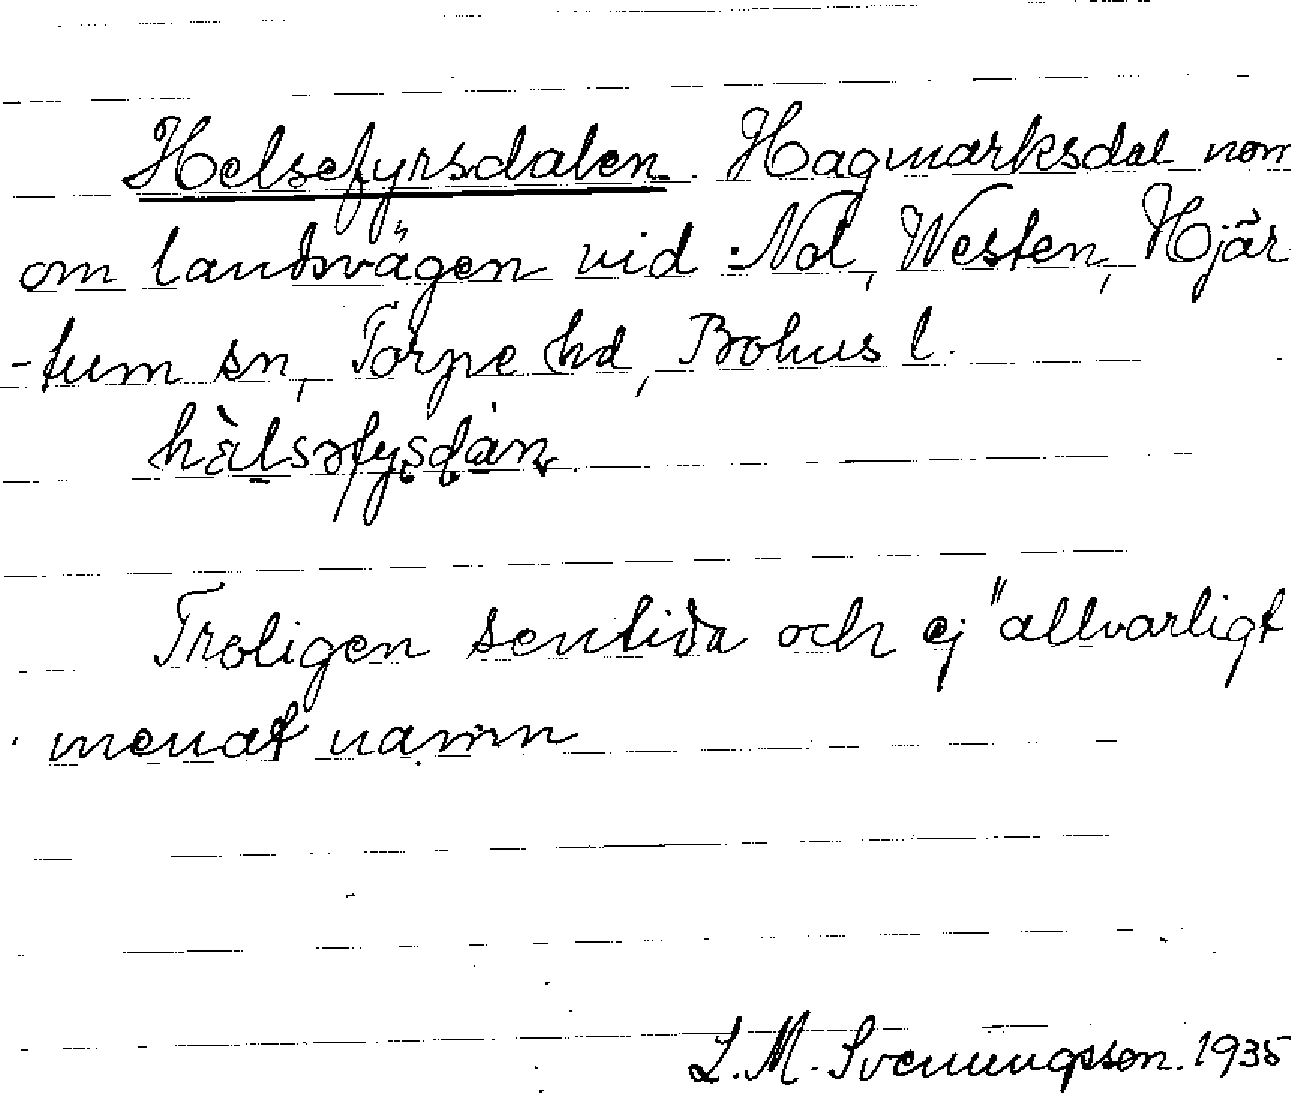 Helsefyrsdalen. Hagmarksdal nom
om landsvägen vid Nol, Westen, Hjär
-tum sn, Torpe hd, Bohus l.
hàlsəfysdán.
Troligen sentida och ej "allvarligt
menat namn
L. M. Svenungsson. 1935